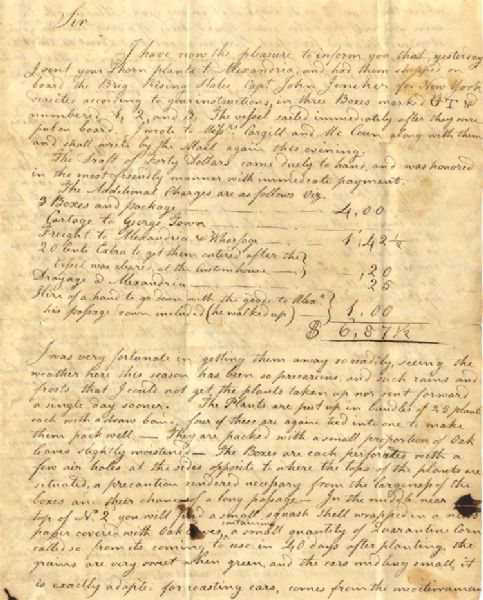 Sir
I have now the pleasure to inform you that yesterday
I sent your Thorn plants to Alexandria, and had them shipped on
board the Brig Rising States Capt. John for New York
directed according to your instructions, in three Boxes marked G T &
numbered 1, 2, and 3. The vessel sailed immediately after they were
put on board. I wrote to Messrs. Cargill and along with them
and shall write by the Mail again this evening.
The Draft of Forty Dollars came duely to hand, and was honored
in the most friendly manner with immediate payment.
The Additional Charges are as follows Viz.
3 Boxes and package 4,00
Cartage to George Town
Freight to Alexandria & Wharfage 1,42 ½
20 Cents Extra to get them entered after the
vessel was cleared, at the Custom house ,20
Drayage @ Alexandria 25
Hire of a hand to go down with the goods to Alexa
his passage down included (he walked up) 1,00
$ 6,87 ½
I was very fortunate in getting them away so readily, seeing the
weather here this season has been so precarious, and such rains and
frosts that I could not get the plants taken up nor sent forward
a single day sooner. The Plants are put up in bundles of 250 plants
each with a straw band, four of these are again tied into one to make
them pack well — They are packed with a small proportion of Oak
leaves slightly moistened — The Boxes are each perforated with a
few air holes at the sides opposite to where the tops of the plants are
situated, a precaution rendered necessary from the largeness of the
boxes and their chance of a long passage — In the middle near
top of No. 2 you will find a small squash shell wrapped in a news
paper covered with Oak leaves, containing a small quantity of Quarantine Corn
called so from its coming to use in 40 days after planting, the
grains are very sweet when green, and the ears midling small, it
is exactly adapted for roasting ears, comes from the mediterranean